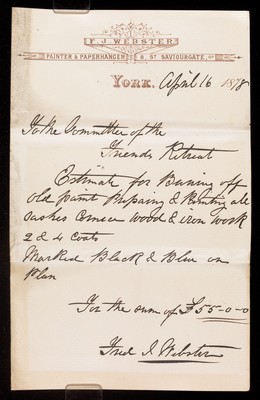 F. J. WEBSTER
PAINTER & PAPERHANGER 8, ST SAVIOURGATE,
YORK. April 16 1878
To the Committee of the
Friends Retreat
Estimate for Burning off
old paint Preparing & Painting all
Sashes Cornice wood & iron work
2 & 4 Coats
Marked Black & Blue on
Plan
For the sum of £55-0-0
Fred J. Webster